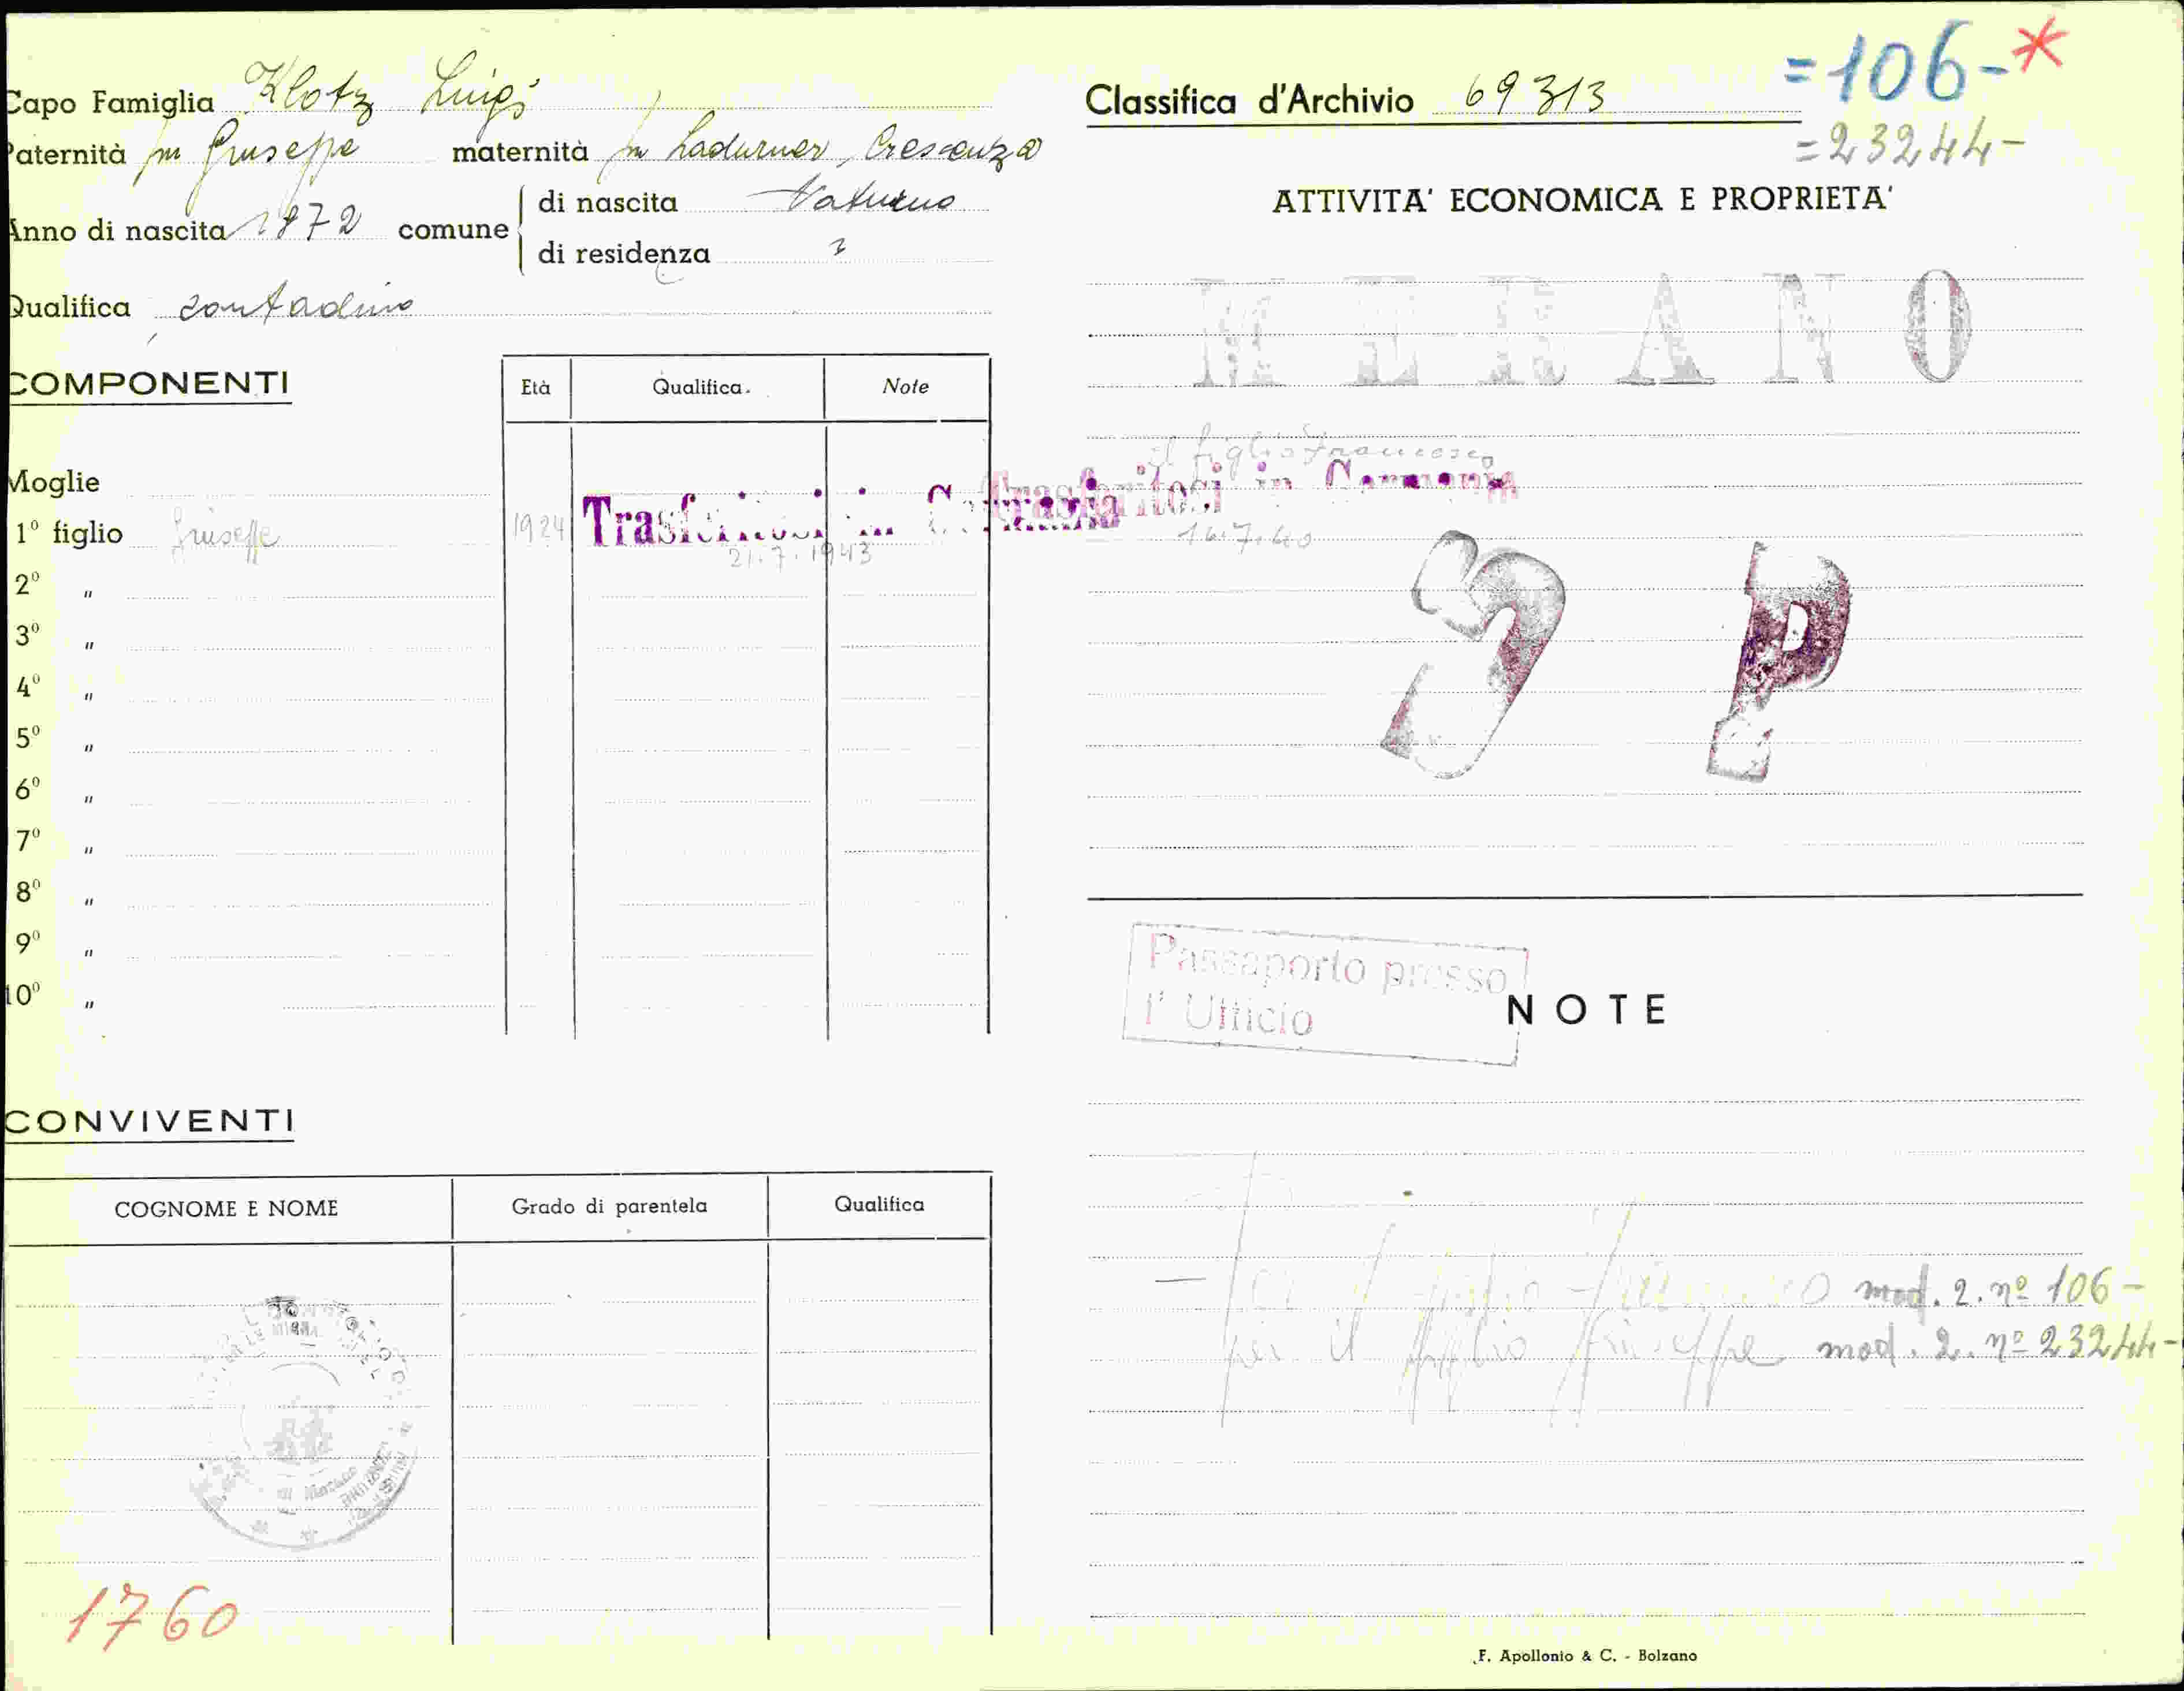 Capo Famiglia Klotz Luigi
Paternità fu Giuseppe maternità fu Ladurner Crescenza
Anno di nascita 1872 comune di nascita Naturno
di residenza "
Qualifica contadino
COMPONENTI
Età Qualifica. Note
Moglie
1º figlio Giuseppe 1924 Trasferitosi in Germania
21.7.1943
2º "
3º "
4º "
5º "
6º "
7º "
8º "
9º "
10º "
CONVIVENTI
COGNOME E NOME Grado di parentela Qualifica
1760
Classifica d'Archivio 69313 =106-*
=23244-
ATTIVITA' ECONOMICA E PROPRIETA'
MERANO
il figlio Francesco
Trasferitosi in Germania
16.7.40
P
Passaporto presso
l'Ufficio
NOTE
- Per il figlio Francesco mod. 2. nº 106-
per il figlio Giuseppe mod. 2. nº 23244-
F. Apollonio & C. - Bolzano